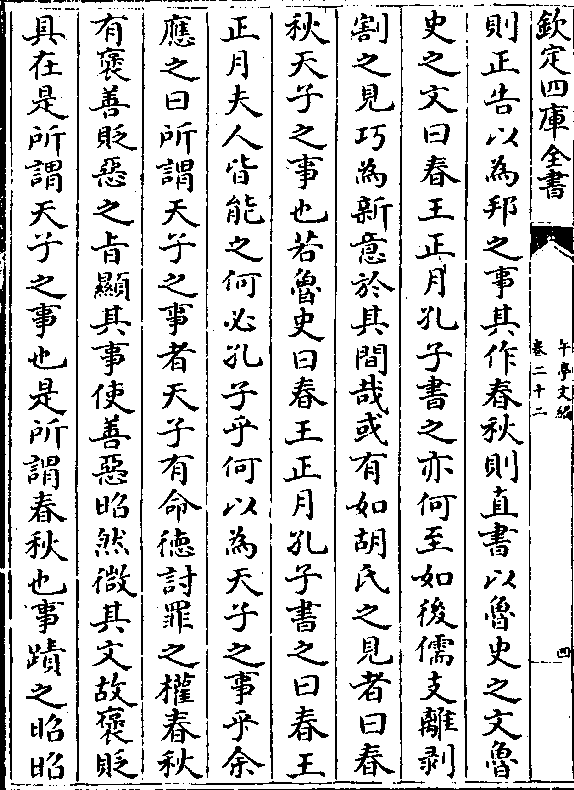 欽定四庫全書
午亭文編
卷二十二
四
則正告以為邦之事其作春秋則直書以魯史之文魯
史之文曰春王正月孔子書之亦何至如後儒支離剥
割之見巧為新意於其間哉或有如胡氏之見者曰春
秋天子之事也若魯史曰春王正月孔子書之曰春王
正月夫人皆能之何必孔子乎何以為天子之事乎余
應之曰所謂天子之事者天子有命徳討罪之權春秋
有褒善貶惡之旨顯其事使善惡昭然微其文故褒貶
具在是所謂天子之事也是所謂春秋也事蹟之昭昭